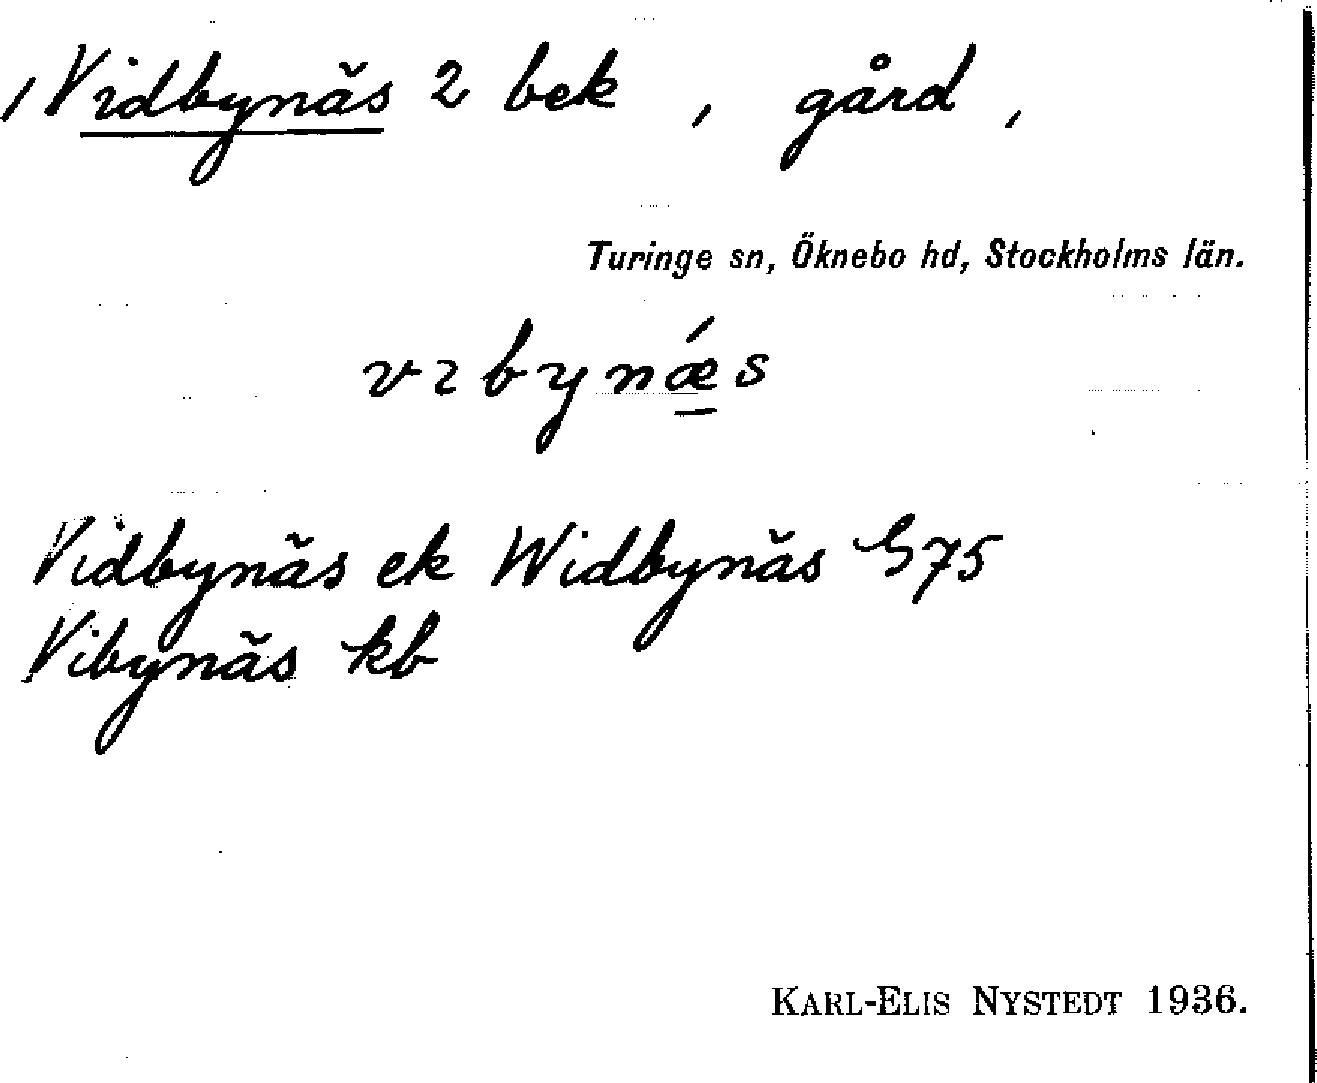 Vidbynäs 2 bek, gård,
Turinge sn, Öknebo hd, Stockholms län.
vɩbynǽs
Vidbynäs ek Widbynäs G75
Vibynäs kb
KARL-ELIS NYSTEDT 1936.